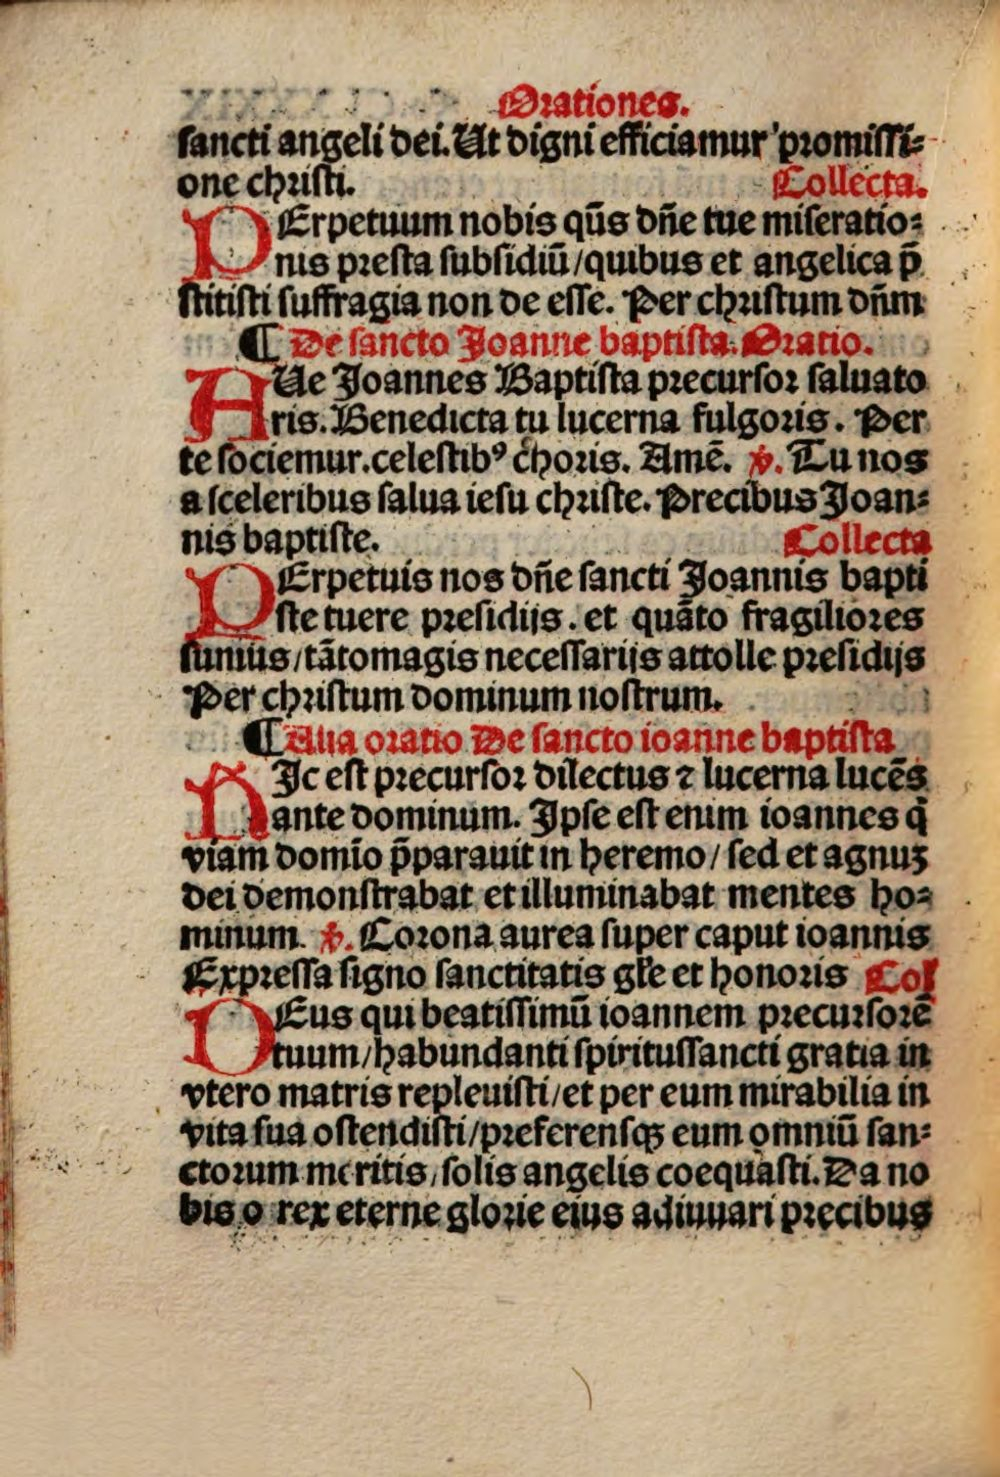 Orationes.
sancti angeli dei. Ut digni efficiamur promissi⸗
one christi. Collecta.
PErpetuum nobis q̄s dñe tue miseratio⸗
nis presta subsidiū/quibus et angelica p̄
stitisti suffragia non de esse. Per christum dñm
¶ De sancto Joanne baptista. Oratio.
AUe Joannes Baptista precursor saluato
ris. Benedicta tu lucerna fulgoris. Per
te sociemur.celestibꝰ choris. Amē. ℣. Tu nos
a sceleribus salua iesu christe. Precibus Joan⸗
nis baptiste. Collecta
PErpetuis nos dñe sancti Joannis bapti
ste tuere presidijs. et quāto fragiliores
sumus/tātomagis necessarijs attolle presidijs
Per christum dominum nostrum.
¶ Alia oratio De sancto ioanne baptista
HIc est precursor dilectus ⁊ lucerna lucēs
ante dominum. Ipse est enim ioannes q̄
viam domīo p̄parauit in heremo/ sed et agnuꝫ
dei demonstrabat et illuminabat mentes ho⸗
minum. ℣. Corona aurea super caput ioannis
Expressa signo sanctitatis gl̄e et honoris Col
DEus qui beatissimū ioannem precursorē
tuum/habundanti spiritussancti gratia in
vtero matris repleuisti/et per eum mirabilia in
vita sua ostendisti/preferensqꝫ eum omniū san⸗
ctorum meritis/solis angelis coequasti. Da no
bis o rex eterne glorie eius adiuuari precibus